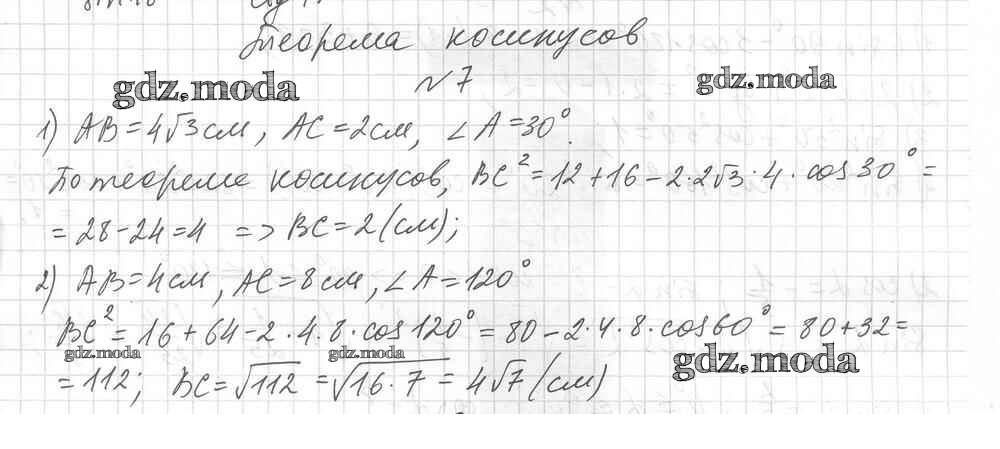 Теорема косинусов
№7
gdz.moda
gdz.moda
1) AB=4√3 см, AC=2см, ∠A=30°.
По теореме косинусов, BC²=12+16-2·2√3·4·cos30°=
=28-24=4 => BC=2(см);
2) AB=4см, AC=8см, ∠A=120°
BC²=16+64-2·4·8·cos120°=80-2·4·8·cos60°=80+32=
gdz.moda
gdz.moda
gdz.moda
=112; BC=√112=√16·7=4√7(см)